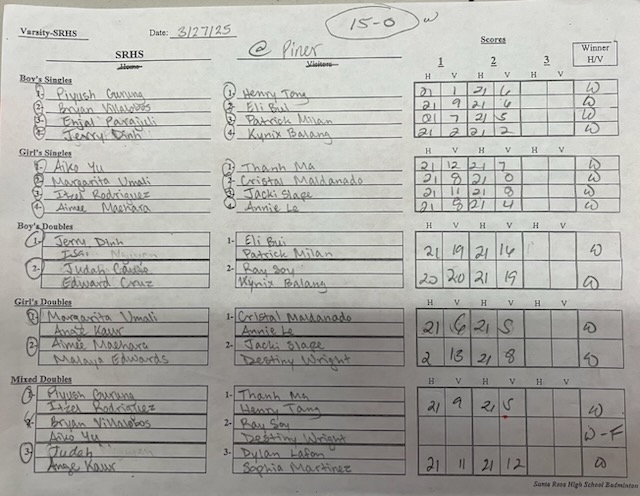 Varsity-SRHS Date: 3/27/25 15-0 W
SRHS @ Piner Scores
Home Visitors 1 2 3 Winner H/V
Boy's Singles H V H V H V
1- Piyush Gurung 1- Henry Tang 21 1 21 6 W
2- Bryan Villalobos 2- Eli Bui 21 9 21 6 W
3- Enjal Parajuli 3- Patrick Milan 21 7 21 5 W
4- Jerry Dinh 4- Kynix Balang 21 2 21 2 W
Girl's Singles H V H V H V
1- Aiko Yu 1- Thanh Ma 21 12 21 7 W
2- Margarita Umali 2- Cristal Maldanado 21 8 21 0 W
3- Itzel Rodriguez 3- Jacki Slape 21 11 21 8 W
4- Aimee Maehara 4- Annie Le 21 8 21 4 W
Boy's Doubles H V H V H V
1- Jerry Dinh 1- Eli Bui 21 19 21 16 W
Patrick Milan
2- Judah 2- Ray Soy 20 20 21 19 W
Edward Cruz Kynix Balang
Girl's Doubles H V H V H V
1- Margarita Umali 1- Cristal Maldanado 21 6 21 5 W
Ange Kaur Annie Le
2- Aimee Maehara 2- Jacki Slape 2 13 21 8 W
Malaya Edwards Destiny Wright
Mixed Doubles H V H V H V
1- Piyush Gurung 1- Thanh Ma 21 9 21 5 W
Itzel Rodriguez Henry Tang
2- Bryan Villalobos 2- Ray Soy W-F
Aiko Yu Destiny Wright
3- Judah 3- Dylan Lafon 21 11 21 12 W
Ange Kaur Sophia Martinez
Santa Rosa High School Badminton